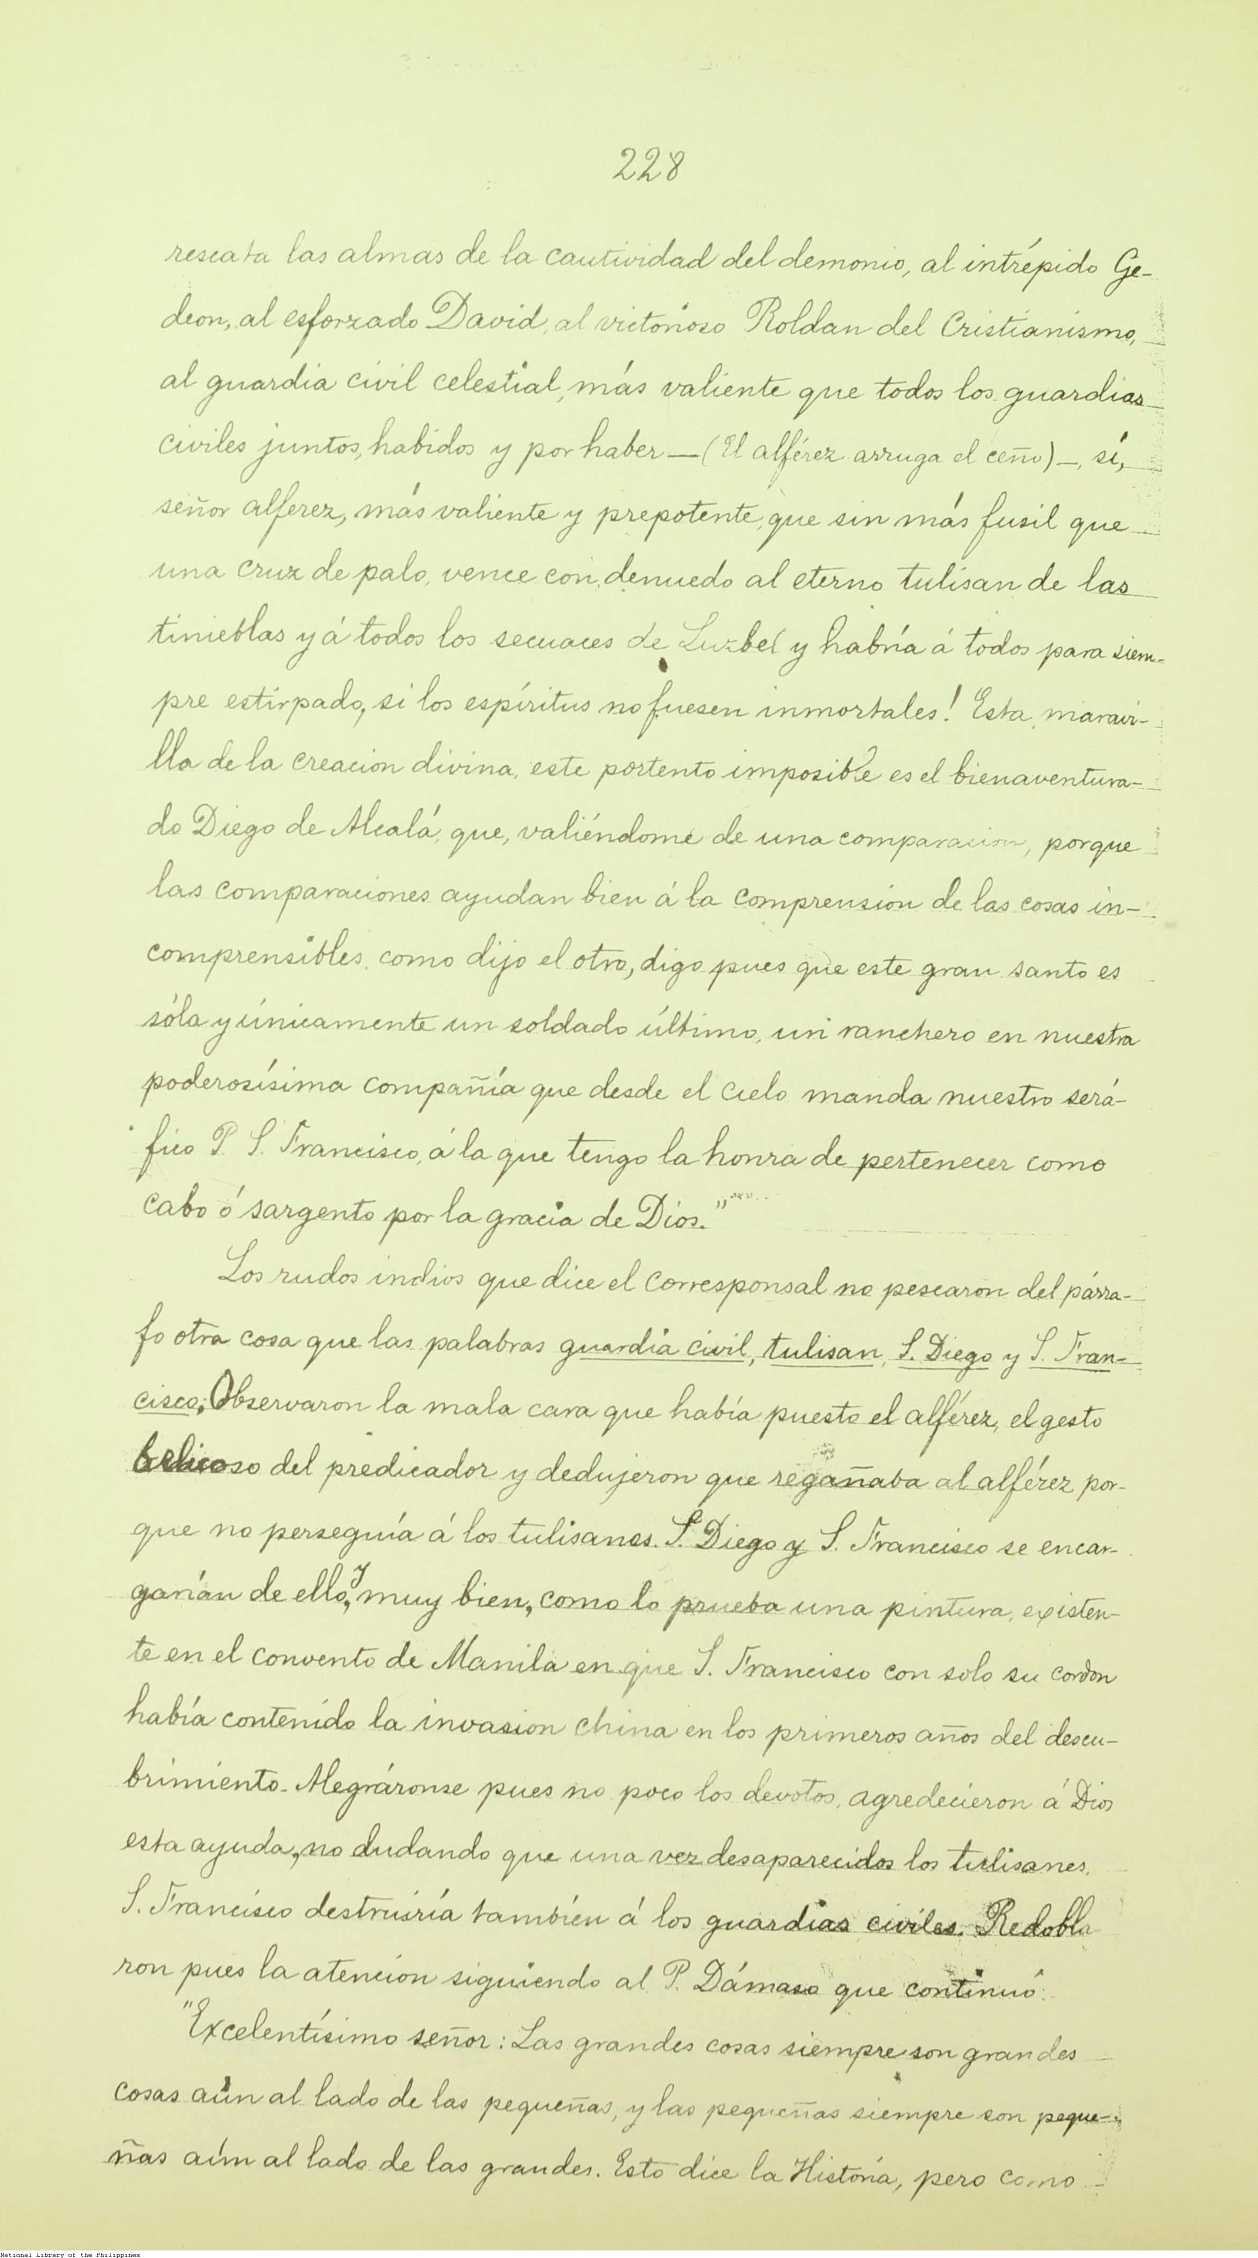 228
rescata las almas de la cautividad del demonio, al intrépido Ge-
deon, al esforzado David, al victorioso Roldan del Cristianismo,
al guardia civil celestial, más valiente que todos los guardias
civiles juntos, habidos y por haber — (El alférez arruga el ceño) —, sí,
señor alferez, más valiente y prepotente, que sin más fusil que
una cruz de palo, vence con denuedo al eterno tulisan de las
tinieblas y á todos los secuaces de Luzbel y habría á todos para siem-
pre estirpado, si los espíritus no fuesen inmortales! Esta maravi-
lla de la creacion divina, este portento imposible es el bienaventura-
do Diego de Alcalá, que, valiéndome de una comparacion, porque
las comparaciones ayudan bien á la comprension de las cosas in-
comprensibles, como dijo el otro, digo pues que este gran santo es
sóla y únicamente un soldado último, un ranchero en nuestra
poderosísima compañía que desde el cielo manda nuestro será-
fico P. S. Francisco, á la que tengo la honra de pertenecer como
cabo ó sargento por la gracia de Dios."
Los rudos indios que dice el corresponsal no pescaron del párra-
fo otra cosa que las palabras guardia civil, tulisan, S. Diego y S. Fran-
cisco; Observaron la mala cara que había puesto el alférez, el gesto
belicoso del predicador y dedujeron que regañaba al alférez por-
que no perseguía á los tulisanes. S. Diego y S. Francisco se encar-
garían de ello, y muy bien, como lo prueba una pintura, existen-
te en el convento de Manila en que S. Francisco con solo su cordon
había contenido la invasion china en los primeros años del descu-
brimiento. Alegráronse pues no poco los devotos, agredecieron á Dios
esta ayuda, no dudando que una vez desaparecidos los tulisanes,
S. Francisco destruiría también á los guardias civiles. Redobla
ron pues la atencion siguiendo al P. Dámaso que continuó:
"Excelentísimo señor: Las grandes cosas siempre son grandes
cosas aún al lado de las pequeñas, y las pequeñas siempre son peque-
ñas aún al lado de las grandes. Esto dice la Historia, pero como
National Library of the Philippines